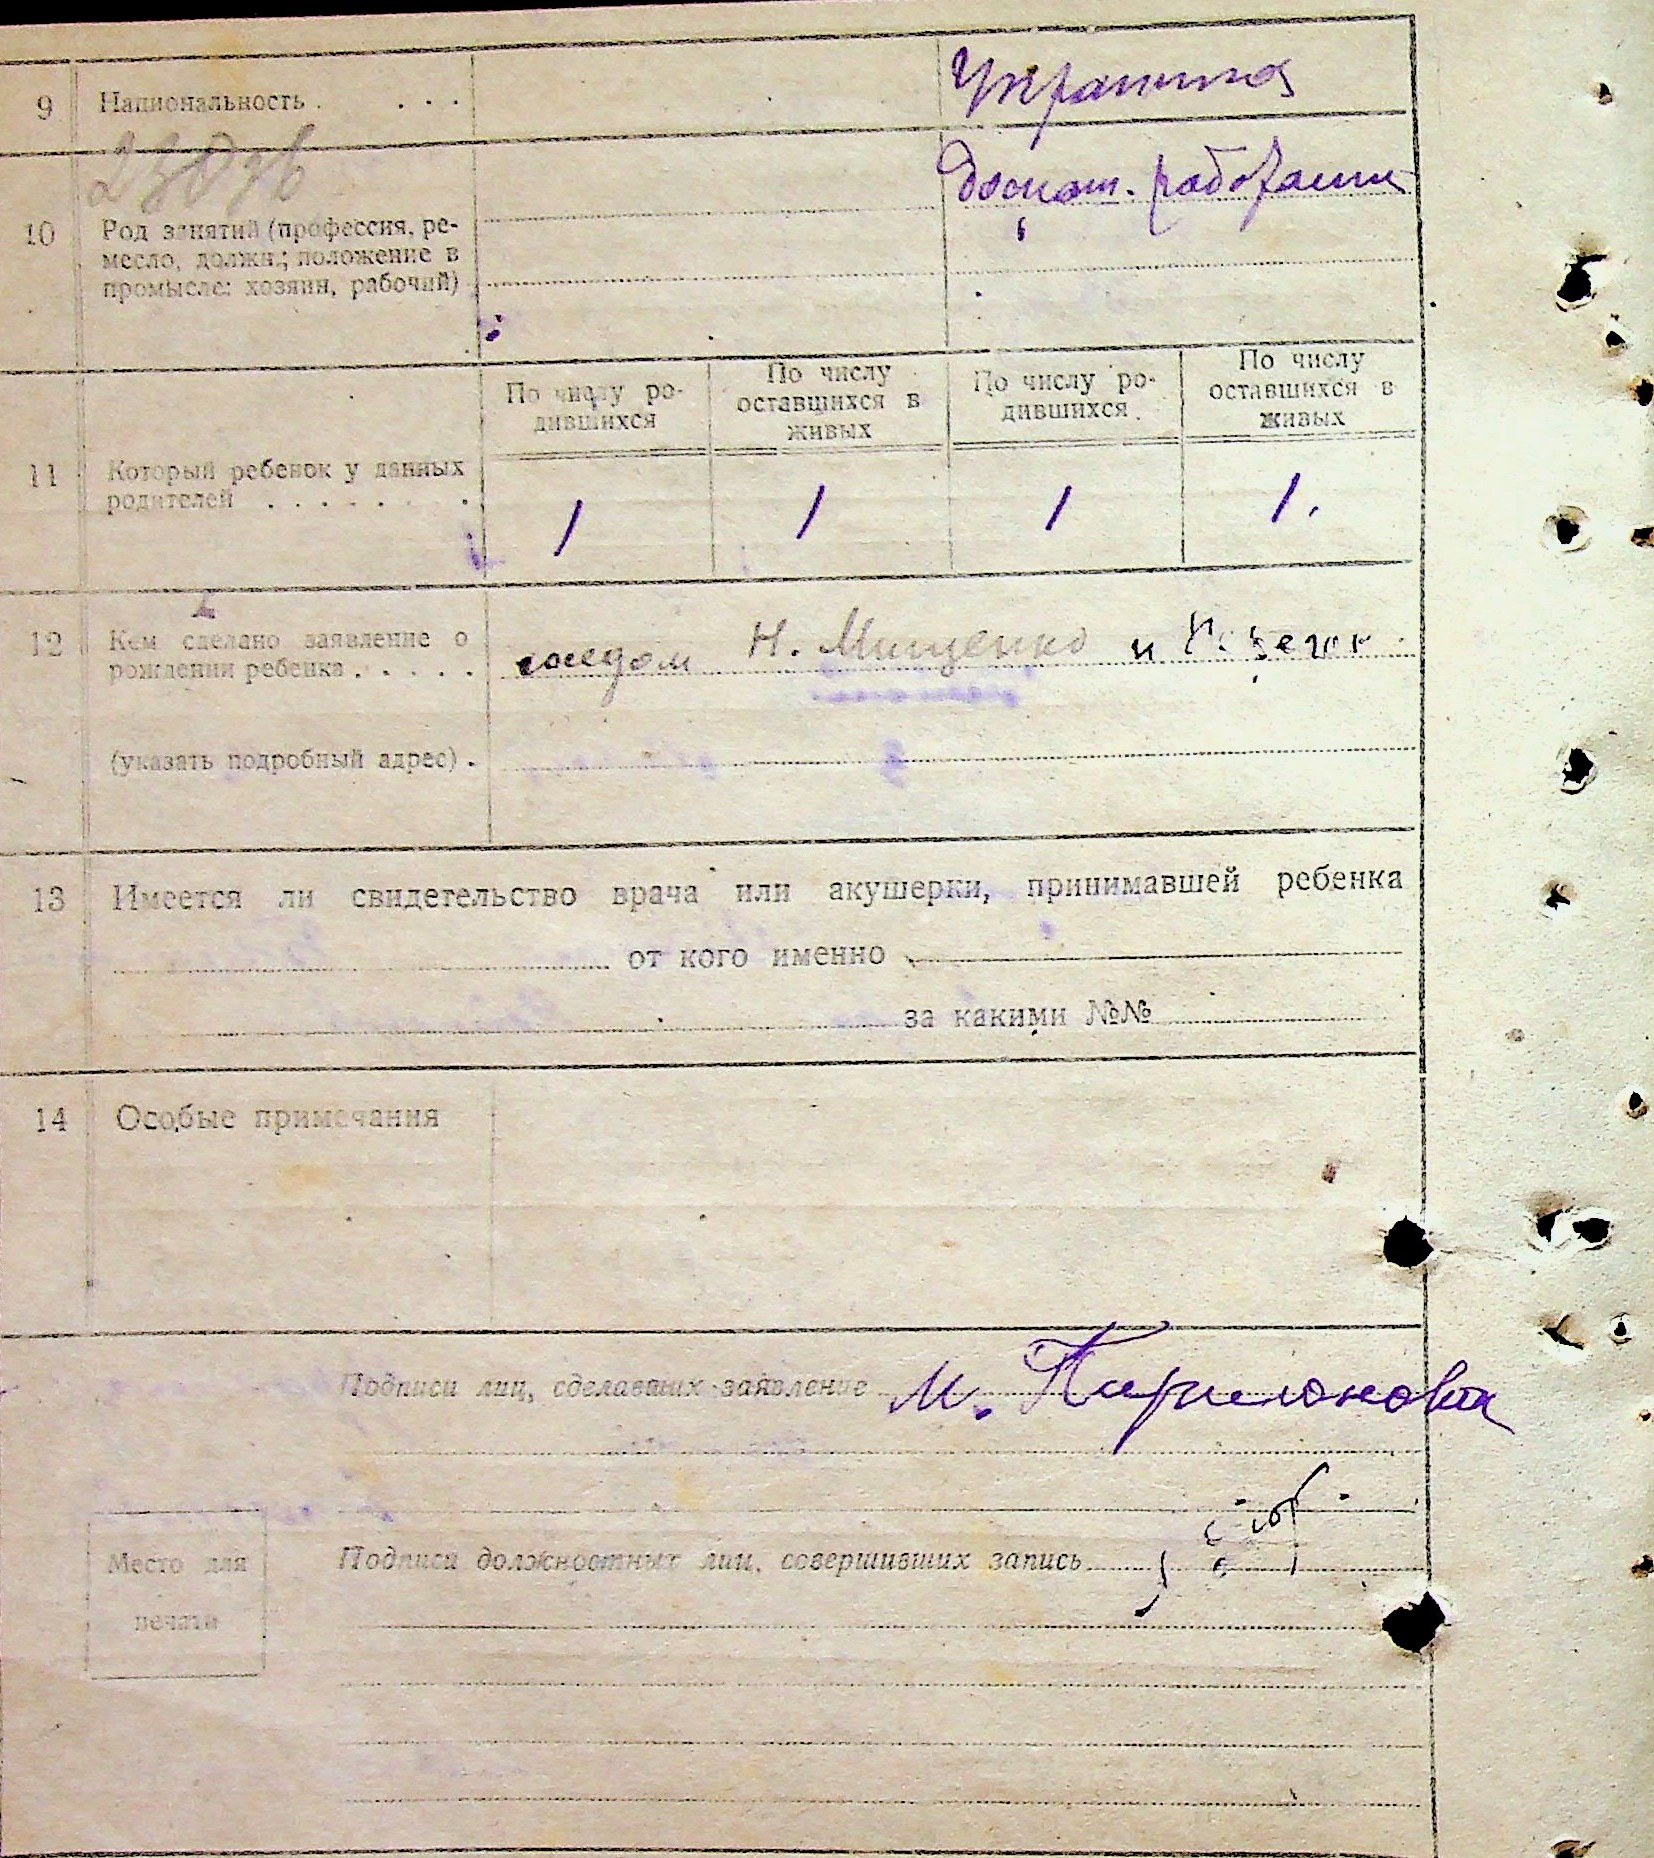 9 Национальность . . . . Украинка
10 Род занятий (профессия, ре-
месло, должн.; положение в
промысле: хозяин, рабочий)
домаш. работы
По числу ро-
дившихся
По числу
оставшихся в
живых
По числу ро-
дившихся
По числу
оставшихся в
живых
11 Который ребенок у данных
родителей . . . . . . .
1 1 1 1.
12 Кем сделано заявление о
рождении ребенка . . . . .
соседом Н. Мищенко и
(указать подробный адрес) .
13 Имеется ли свидетельство врача или акушерки, принимавшей ребенка
от кого именно
за какими №№
14 Особые примечания
Подписи лиц, сделавших заявление М.
Место для
печати
Подписи должностных лиц, совершивших запись